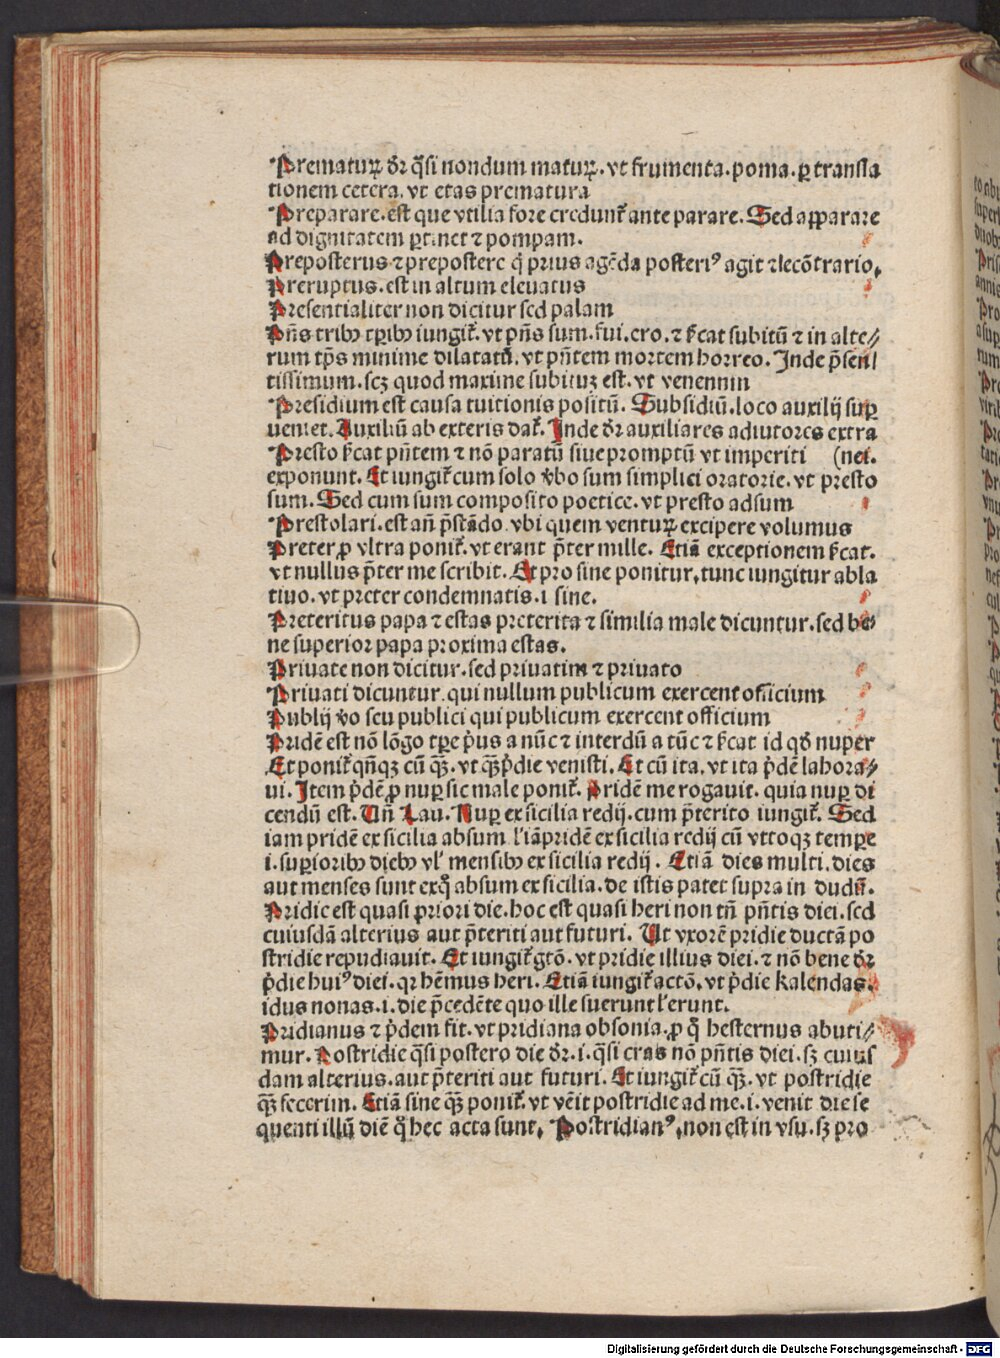 Prematuꝝ dr̄ q̄si nondum matuꝝ. vt frumenta. poma. ꝑ transla
tionem cetera. vt etas prematura
Preparare. est que vtilia fore credunt᷑ ante parare. Sed apparare
ad dignitatem ꝑtinet ⁊ pompam.
Preposterus ⁊ prepostere q̄ prius agēda posteriꝰ agit ⁊ lecōtrario.
Preruptus. est in altum eleuatus
Presentialiter non dicitur sed palam
Pn̄s tribꝫ tꝑibꝫ iungit᷑. vt pn̄s sum. fui. ero. ⁊ s̄cat subitū ⁊ in alte⸗
rum tp̄s minime dilatatū. vt pn̄tem mortem horreo. Inde p̄sen⸗
tissimum. scꝫ quod maxime subituꝫ est. vt venennin
Presidium est causa tuitionis positū. Subsidiū. loco auxilij suꝑ
ueniet. Auxiliū ab exteris dat᷑. Inde dr̄ auxiliares adiutores extra
Presto s̄cat pn̄tem ⁊ nō paratū siue promptū vt imperiti (nei.
exponunt. Et iungit᷑ cum solo v̄bo sum simplici oratorie. vt presto
sum. Sed cum sum composito poetice. vt presto adsum
Prestolari. est an̄ p̄stādo vbi quem ventuꝝ excipere volumus
Preter ꝓ vltra ponit᷑. vt erant p̄ter mille. Etiā exceptionem s̄cat.
vt nullus p̄ter me scribit. Et pro sine ponitur, tunc iungitur abla
tiuo. vt preter condemnatis. i sine.
Preteritus papa ⁊ estas preterita ⁊ similia male dicuntur. sed be⸗
ne superior papa proxima estas.
Priuate non dicitur. sed priuatim ⁊ priuato
Priuati dicuntur. qui nullum publicum exercent officium
Publij v̄o seu publici qui publicum exercent officium
Pridē est nō lōgo tꝑe p̓us a nūc ⁊ interdū a tūc ⁊ s̄cat id qd̄ nuper
Et ponit᷑ qn̄qꝫ cū qꝫ̄. vt qꝫ̄ p̓die venisti. Et cū ita. vt ita p̓dē labora⸗
ui. Item p̓dē ꝓ nuꝑ sic male ponit᷑. Pridē me rogauit. quia nuꝑ di
cendū est. Vn̄ Lau. Nuꝑ ex sicilia redij. cum p̄terito iungit᷑. Sed
iam pridē ex sicilia absum l̓ iāpridē ex sicilia redij cū vttoqꝫ tempe
i. suꝑioribꝫ diebꝫ vl̓ mensibꝫ ex sicilia redij. Etiā dies multi. dies
aut menses sunt exq̊ absum ex sicilia. de istis patet supra in dudū.
Pridie est quasi priori die. hoc est quasi heri non tn̄ pn̄tis diei. sed
cuiusdā alterius aut p̄teriti aut futuri. Ut vxorē pridie ductā po
stridie repudiauit. Et iungit᷑ gtō. vt pridie illius diei. ⁊ nō bene dr̄
p̓die huiꝰ diei. qr hēmus heri. Etiā iungit᷑ actō. vt p̓die kalendas.
idus nonas. i. die p̄cedēte quo ille fuerunt l̓ erunt.
Pridianus ⁊ p̓dem fit. vt pridiana obsonia. ꝓ q̊ hesternus abuti⸗
mur. Postridie q̄si postero die dr̄. i. q̄si cras nō pn̄tis diei. sꝫ cuius
dam alterius. aut p̄teriti aut futuri. Et iungit᷑ cū qꝫ̄. vt postridie
qꝫ̄ fecerim. Etiā sine qꝫ̄ ponit᷑. vt vēit postridie ad me. i. venit die se
quenti illū diē q̊ hec acta sunt. Postridianꝰ, non est in vsu. sꝫ pro
Digitalisierung gefördert durch die Deutsche Forschungsgemeinschaft - DFG